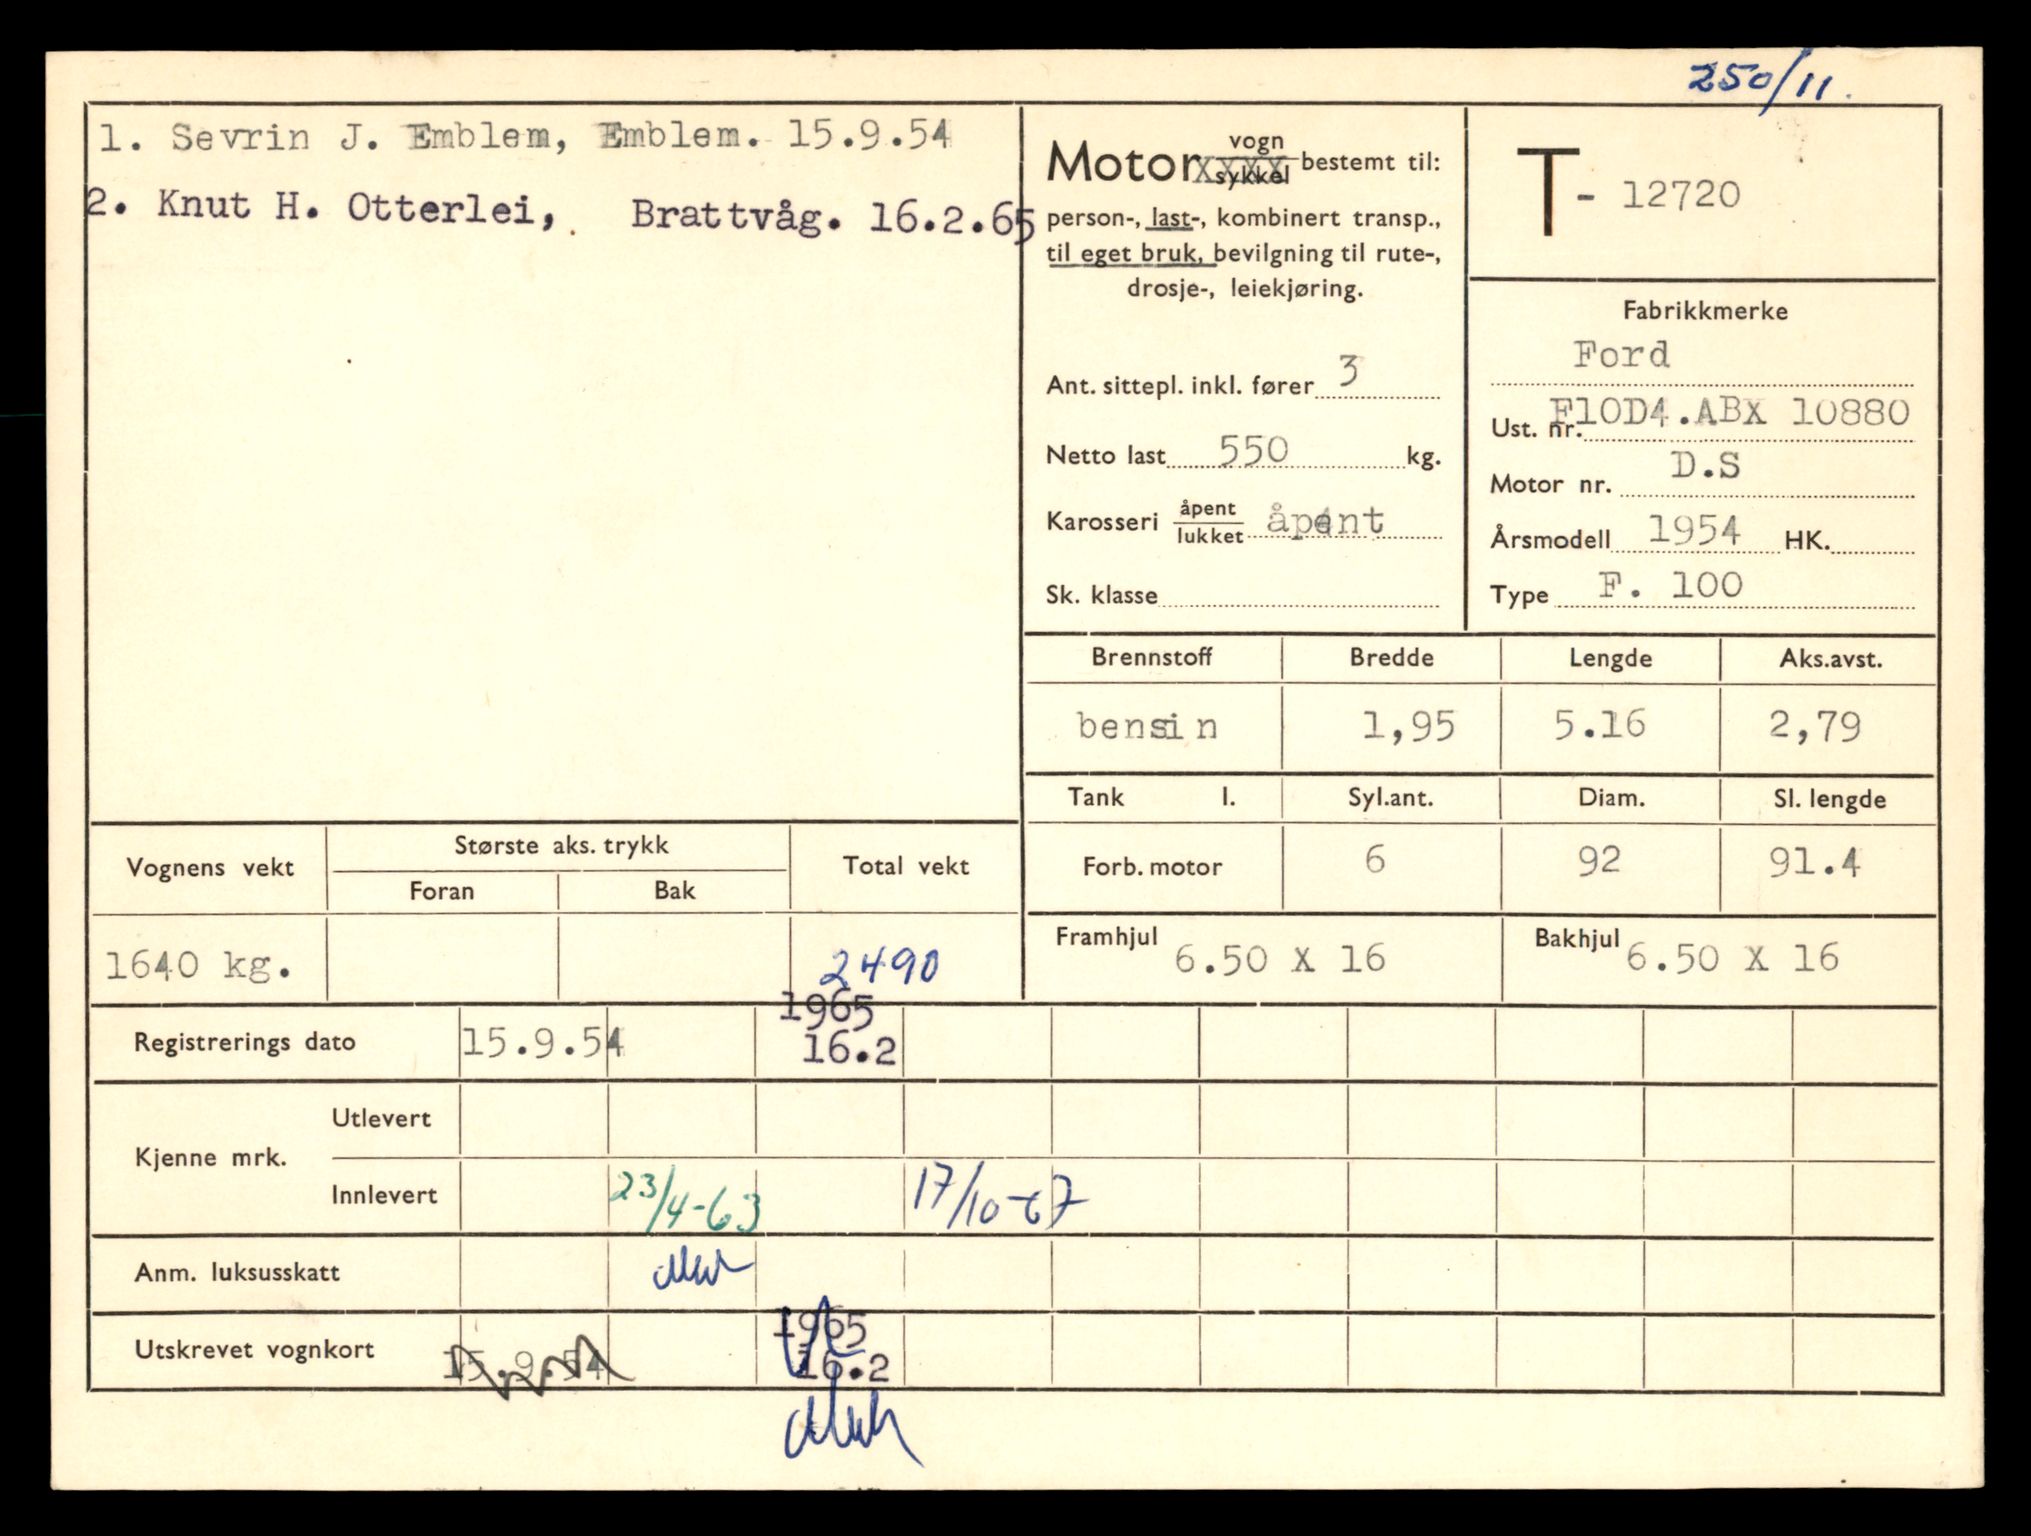 250/11.
1. Sevrin J. Emblem, Emblem. 15.9.54
2. Knut H. Otterlei, Brattvåg. 16.2.65
Motor vogn
XXXX sykkel bestemt til:
person-, last-, kombinert transp.,
til eget bruk, bevilgning til rute-,
drosje-, leiekjøring.
Ant. sittepl. inkl. fører 3
Netto last 550 kg.
Karosseri åpent
lukket åpent
Sk. klasse
T- 12720
Fabrikkmerke
Ford
Ust. nr. F10D4.ABX 10880
Motor nr. D.S
Årsmodell 1954 HK.
Type F. 100
Brennstoff Bredde Lengde Aks.avst.
bensin 1,95 5.16 2,79
Tank l. Syl.ant. Diam. Sl. lengde
Forb. motor 6 92 91.4
Framhjul 6.50 X 16 Bakhjul 6.50 X 16
Vognens vekt Største aks. trykk Total vekt
Foran Bak
1640 kg. 2490
Registrerings dato 15.9.54 1965
16.2
Kjenne mrk. Utlevert
Innlevert 23/4-63 17/10-67
Anm. luksusskatt
Utskrevet vognkort 15.9.54 1965
16.2